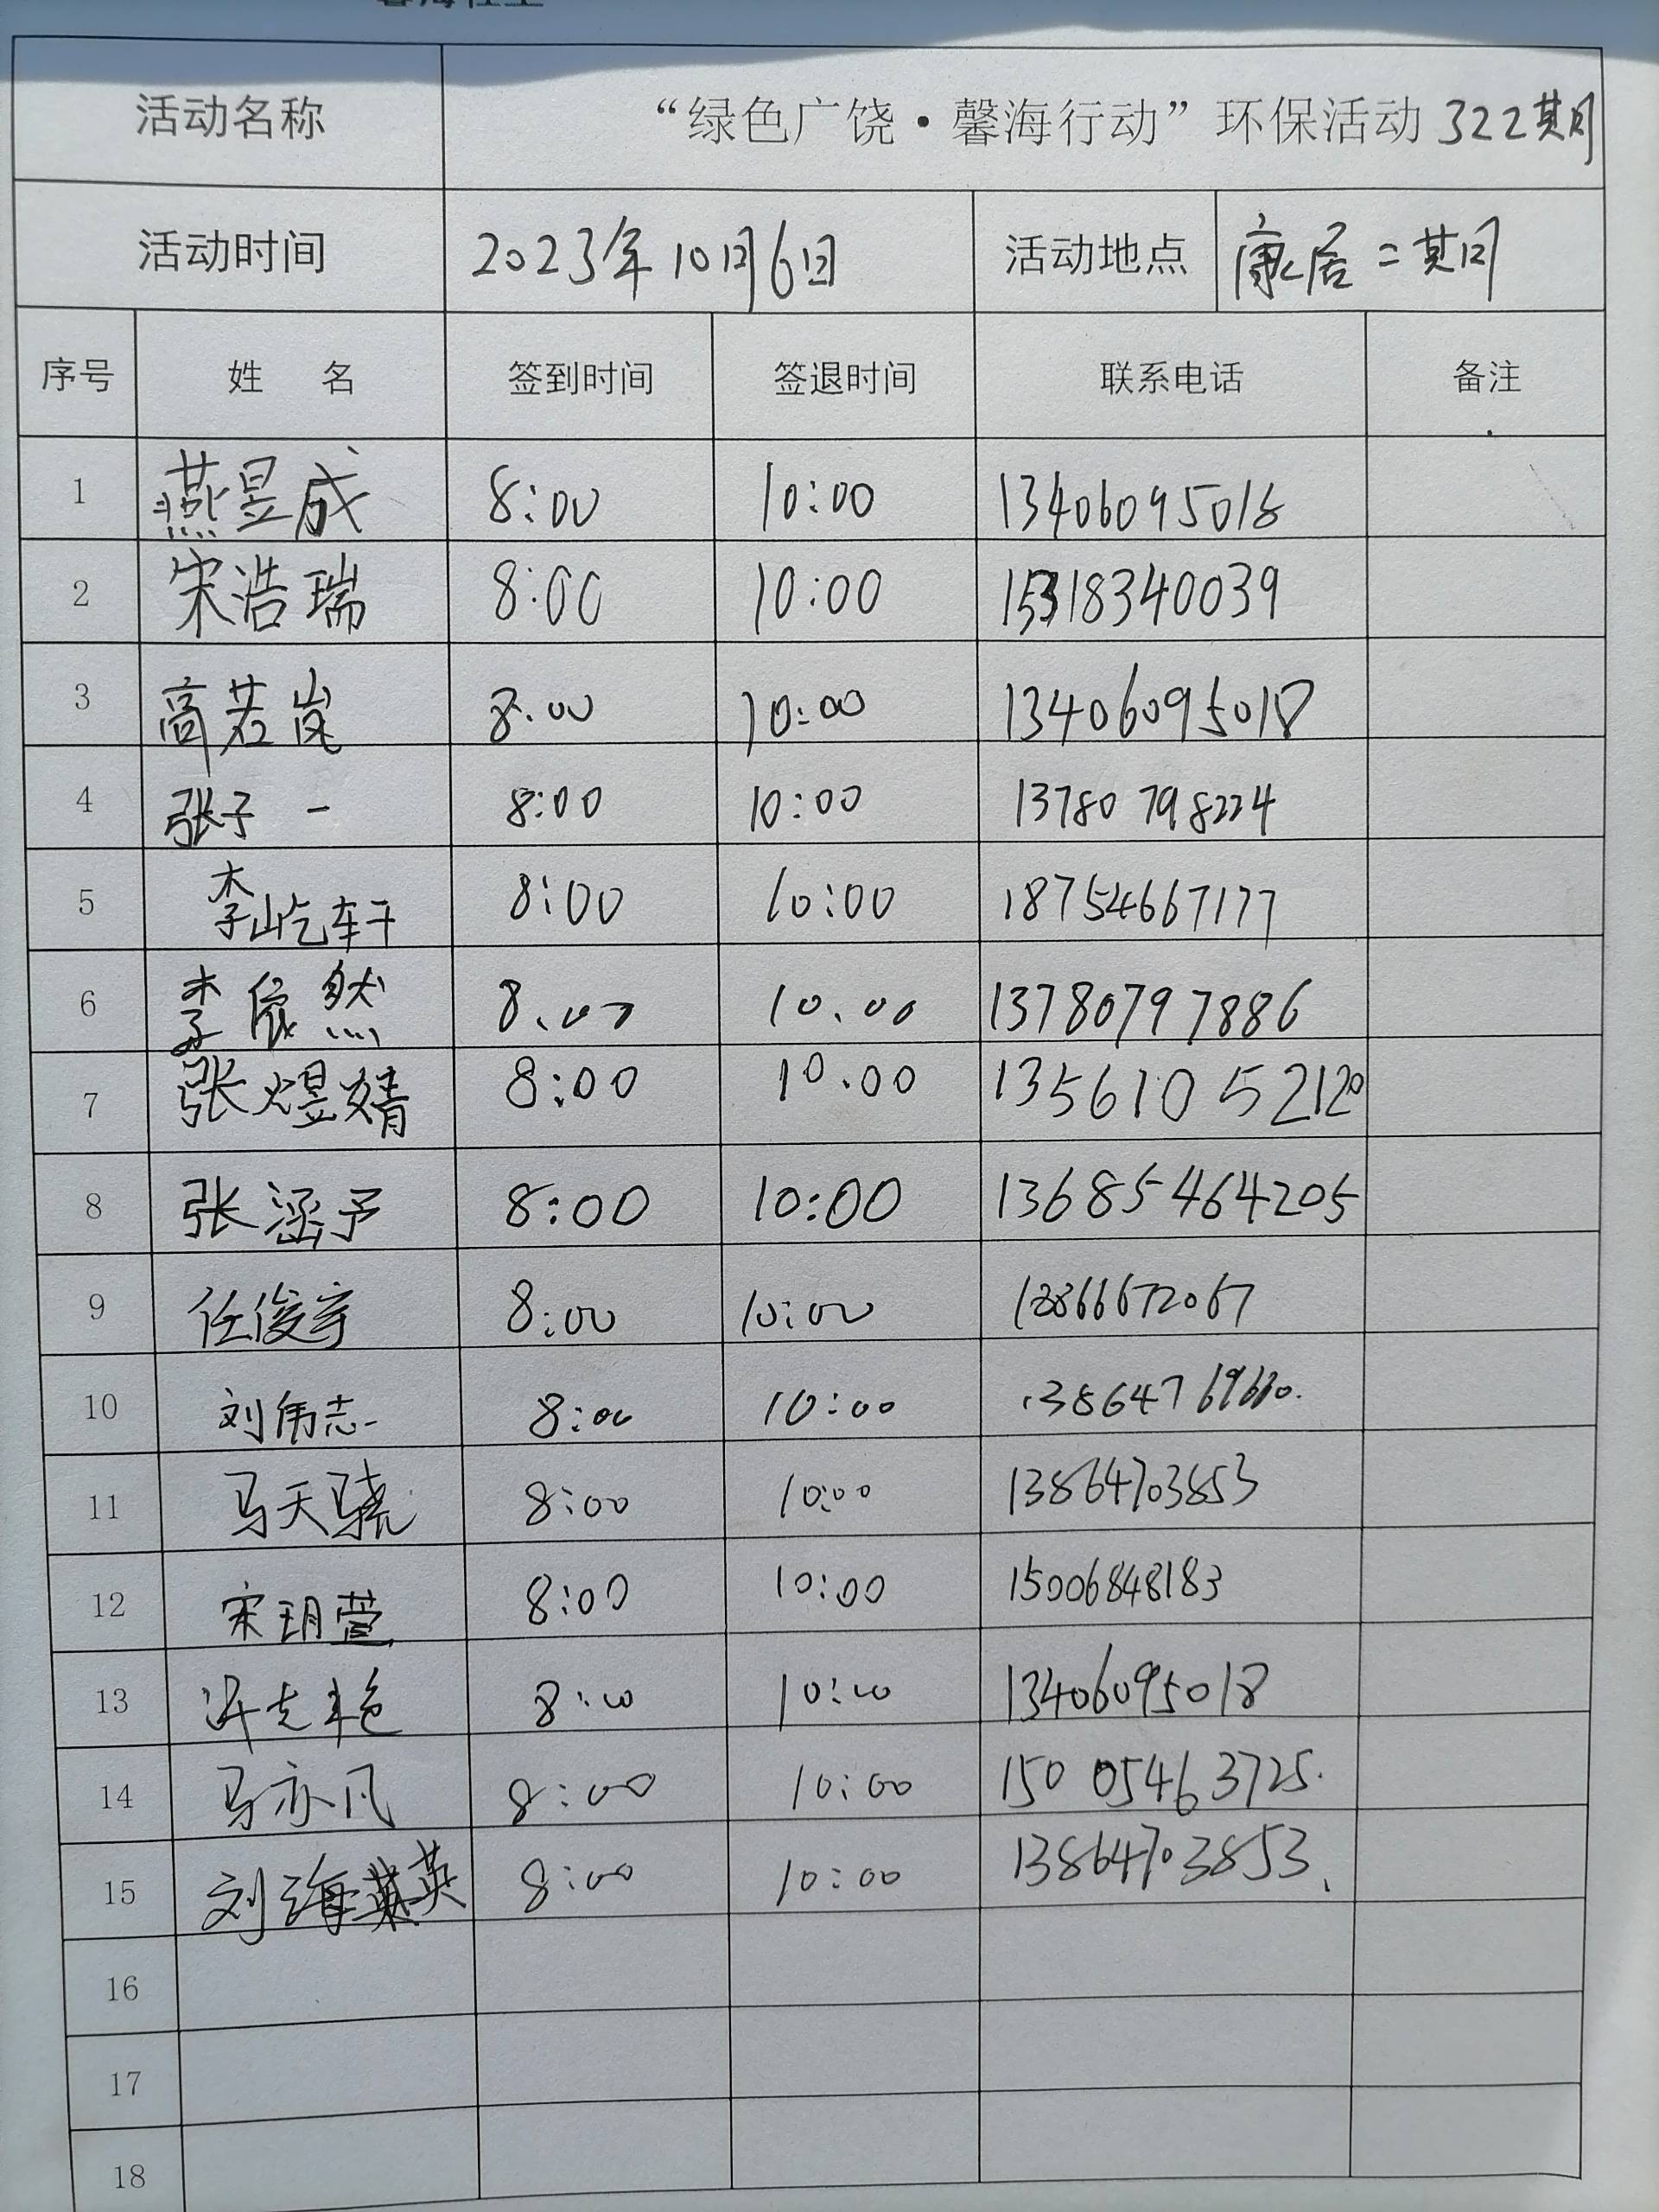 活动名称 “绿色广饶·馨海行动”环保活动 322期
活动时间 2023年10月6日 活动地点 康居二期
序号 姓 名 签到时间 签退时间 联系电话 备注
1 燕昱成 8:00 10:00 13406095018
2 宋浩瑞 8:00 10:00 15318340039
3 高若岚 8:00 10:00 13406095018
4 张子一 8:00 10:00 13780798224
5 李屹轩 8:00 10:00 18754667177
6 李依然 8.00 10.00 13780797886
7 张煜婧 8:00 10:00 13561052120
8 张涵予 8:00 10:00 13685464205
9 任俊宇 8:00 10:00
10 刘伟志 8:00 10:00
11 马天骁 8:00 10:00 13864703853
12 宋玥萱 8:00 10:00 15006848183
13 8:00 10:00 13406095018
14 马亦凡 8:00 10:00 15005463725.
15 刘海英 8:00 10:00 13864703853
16
17
18